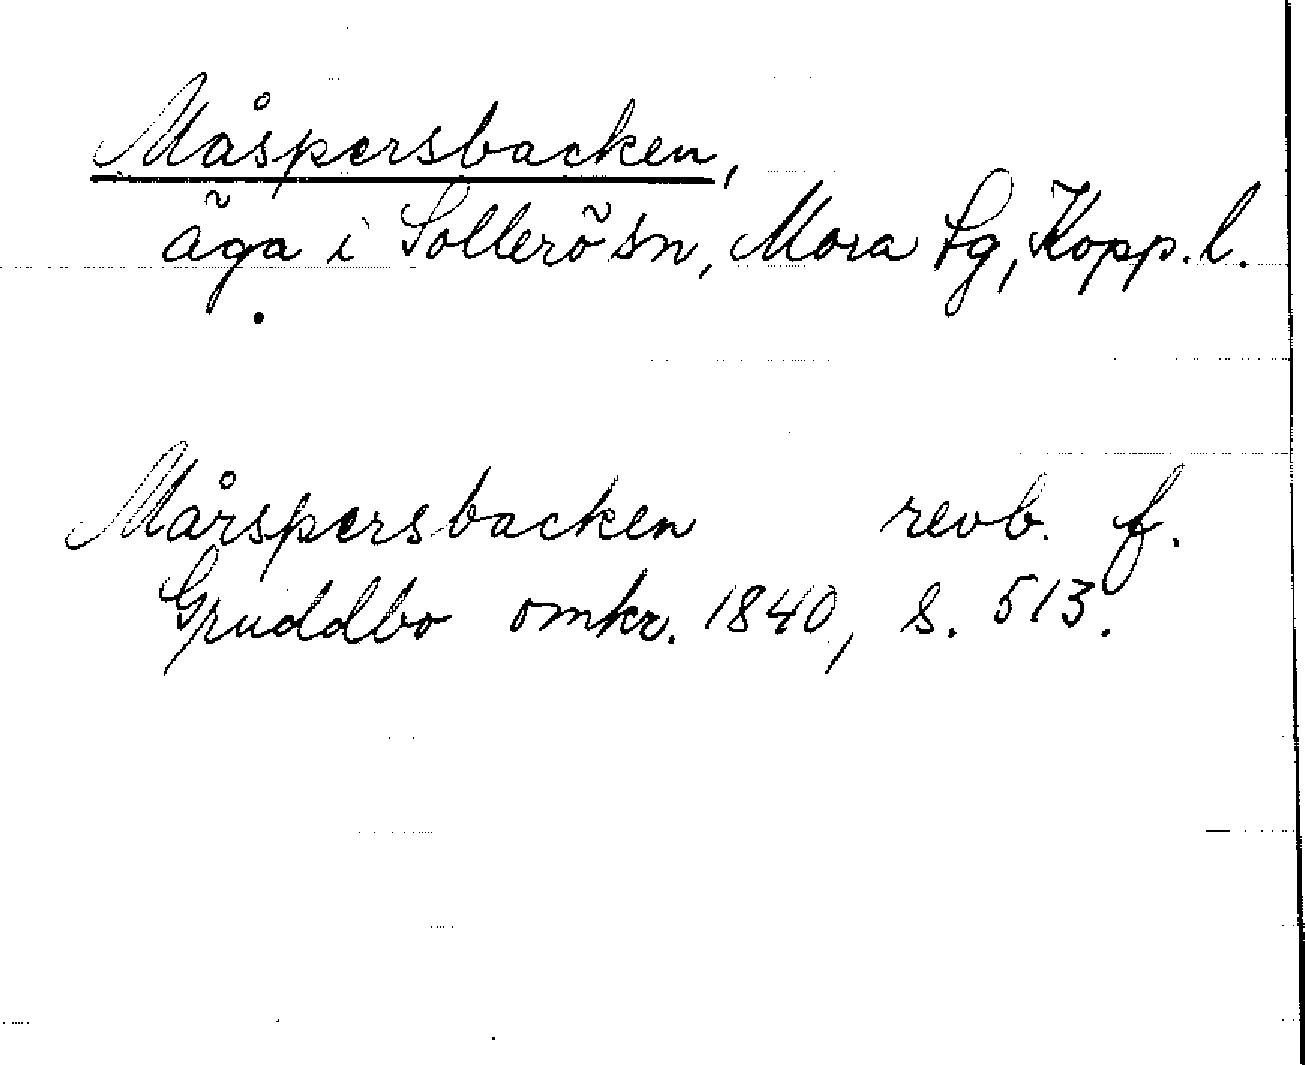 Måspersbacken,
äga i Sollerö sn, Mora tg, Kopp. l.
Mårspersbacken revb. f.
Gruddbo omkr. 1840, s. 513.